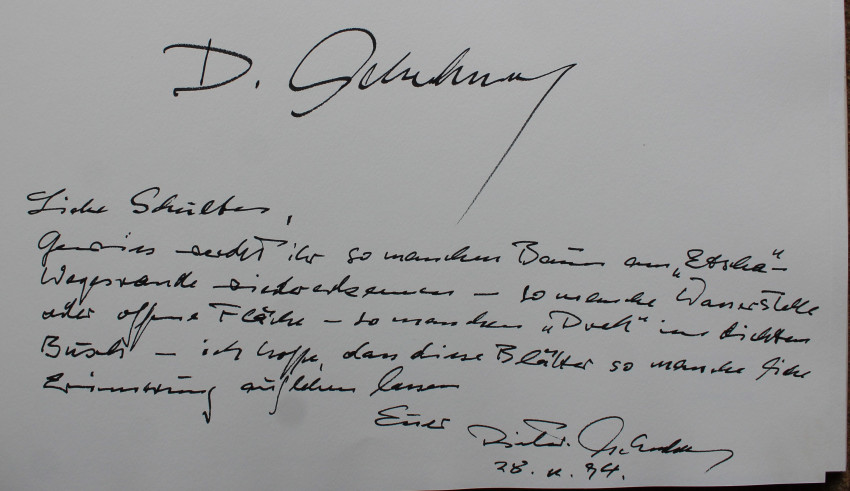 D.
Liebe Schultes,
Gewiss werdet ihr so manchen Baum am „Etscha"-
Wegesrande wiedererkennen – so manche Wasserstelle
oder offene Fläche – so manchen „Dreh" im dichten
Busch – ich hoffe, dass diese Blätter so manche liebe
Erinnerung aufleben lassen
Euer Dieter
28. 94.